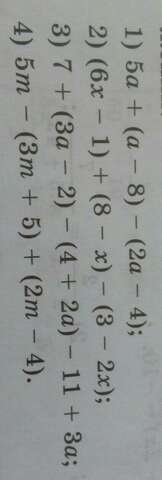 1) 5a + (a − 8) − (2a − 4);
2) (6x − 1) + (8 − x) − (3 − 2x);
3) 7 + (3a − 2) − (4 + 2a) − 11 + 3a;
4) 5m − (3m + 5) + (2m − 4).